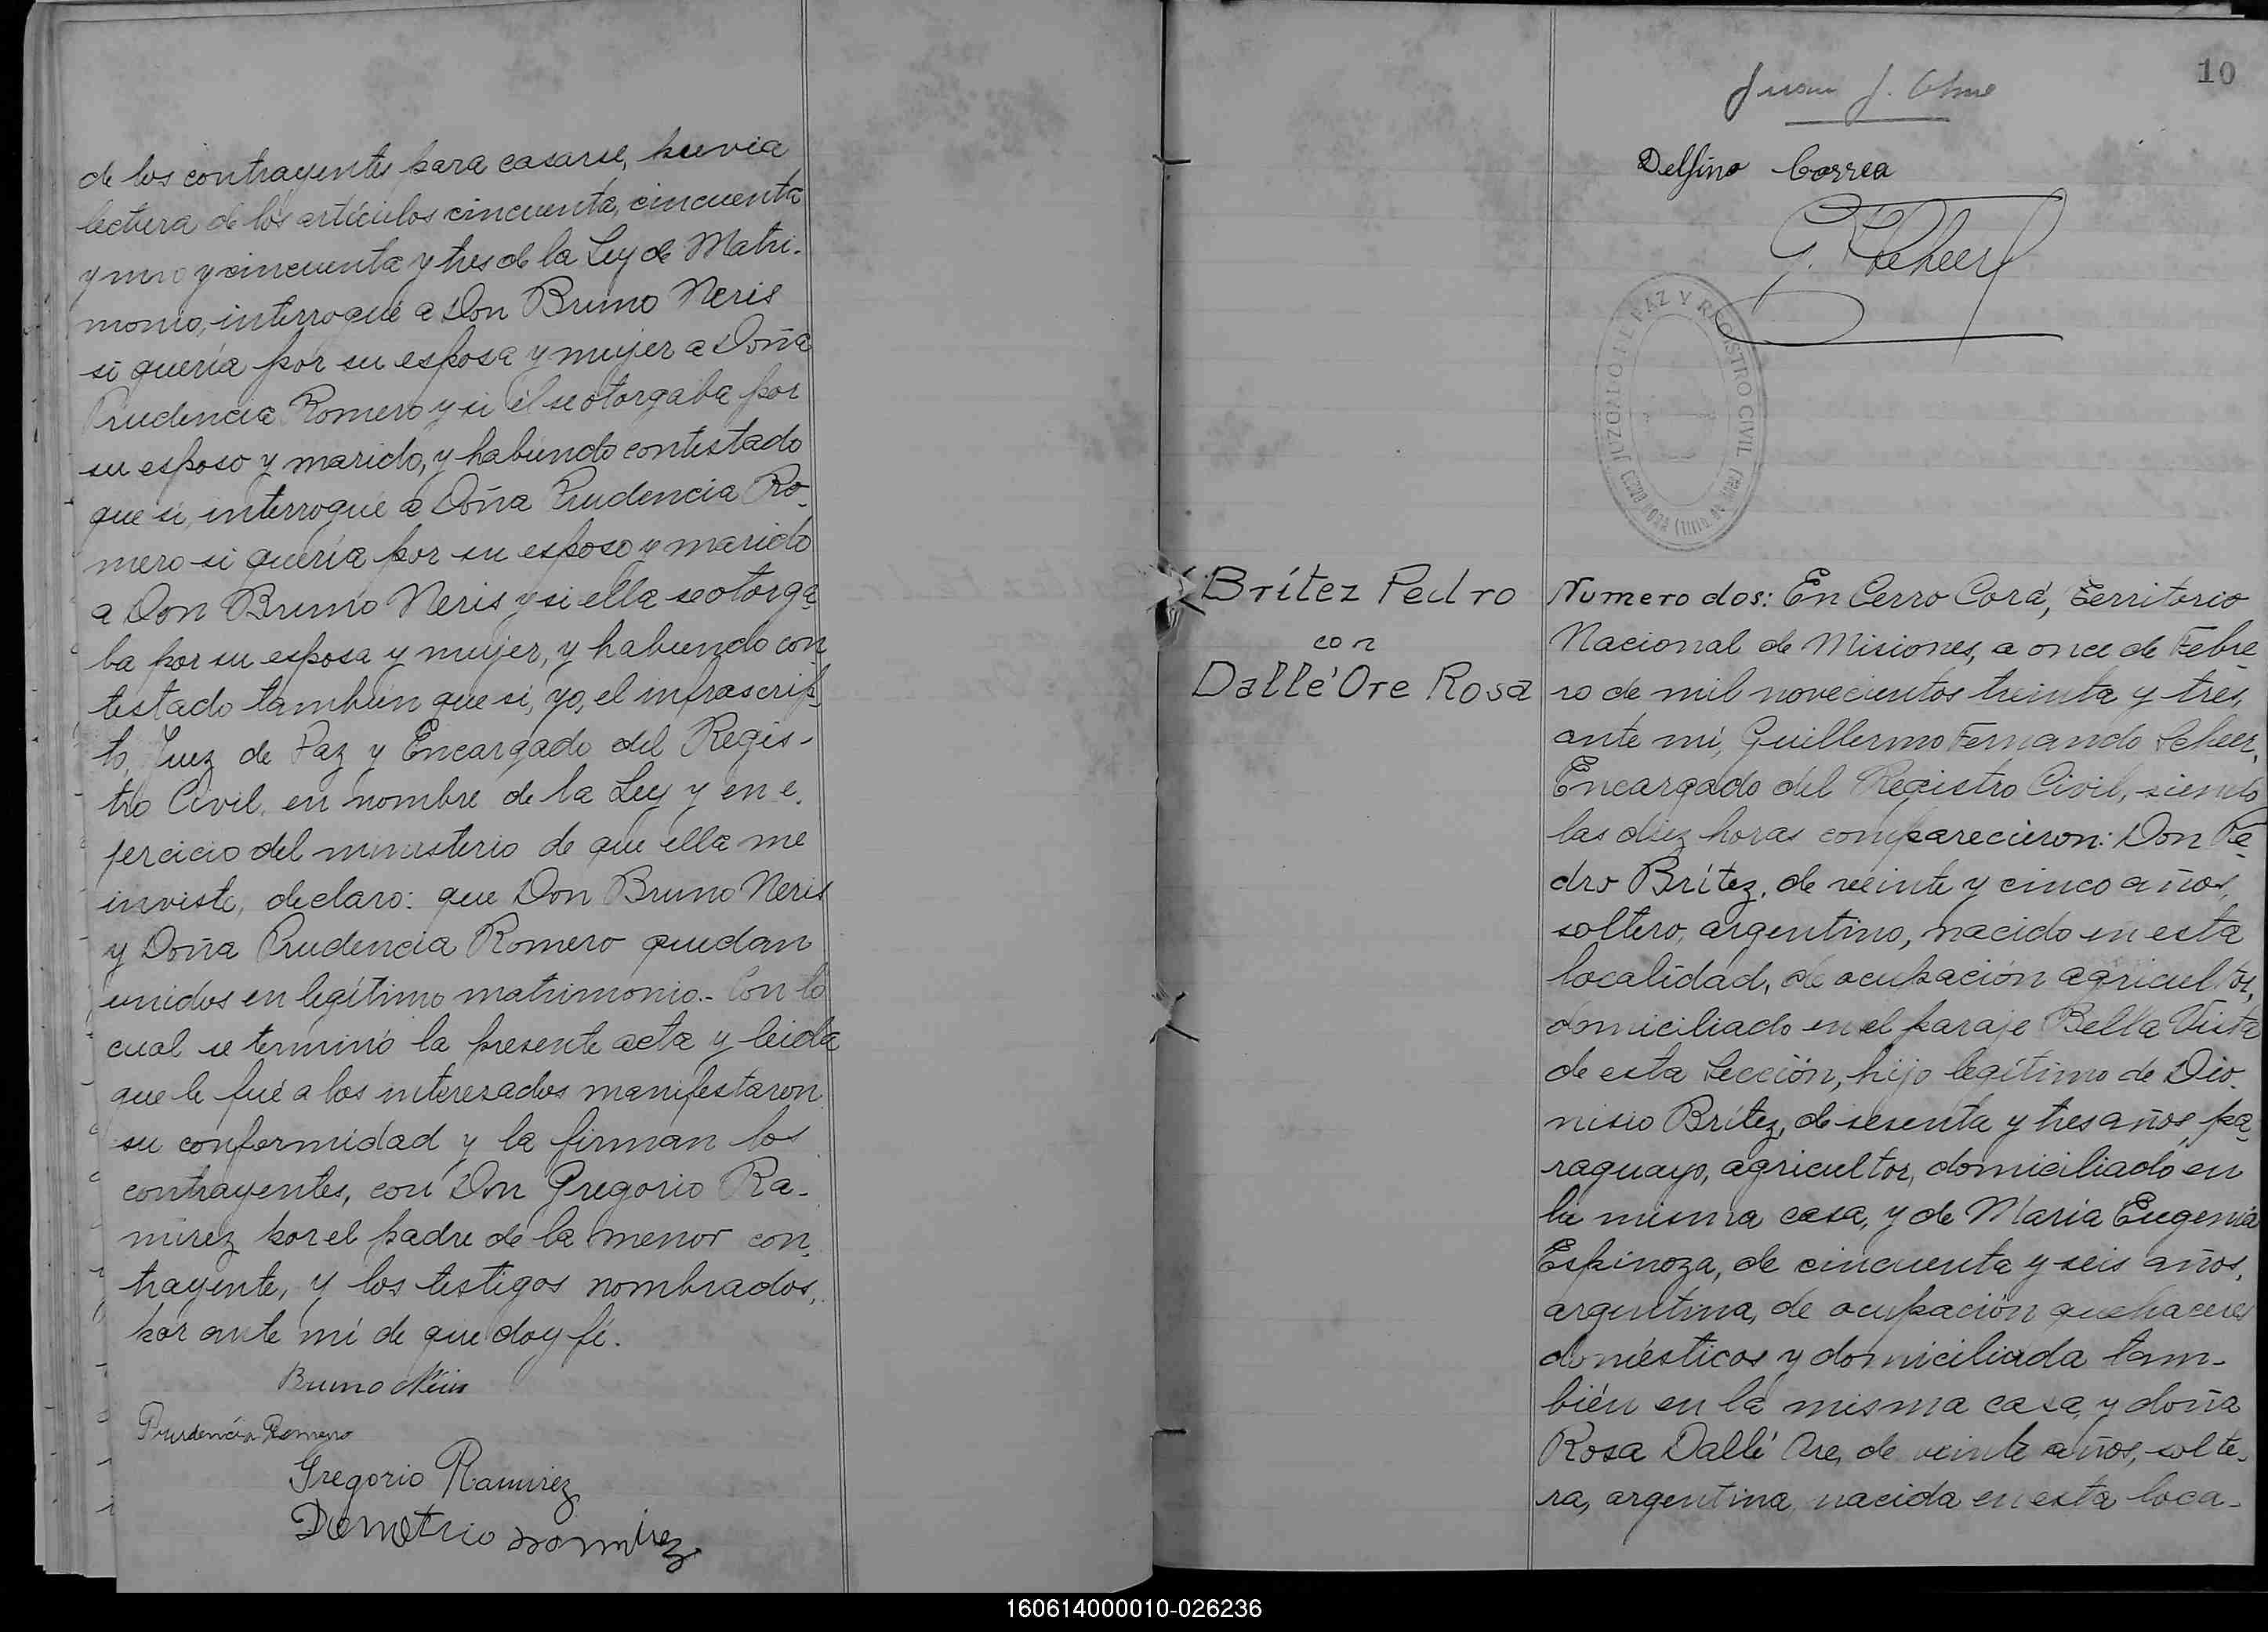 de los contrayentes para casarse, previa
lectura de los artículos cincuenta, cincuenta
y uno y cincuenta y tres de la Ley de Matri-
monio, interrogué a Don Bruno Neris
si quería por su esposa y mujer a Doña
Prudencia Romero y si él se otorgaba por
su esposo y marido, y habiendo contestado
que si, interrogué a Doña Prudencia Ro-
mero si quería por su esposo y marido
a Don Bruno Neris y si ella se otorga-
ba por su esposa y mujer, y habiendo con-
testado también que si, yo, el infrascrip-
to, Juez de Paz y Encargado del Regis-
tro Civil, en nombre de la Ley y en e-
jercicio del ministerio de que ella me
inviste, declaro: que Don Bruno Neris
y Doña Prudencia Romero quedan
unidos en legítimo matrimonio.- Con lo
cual se terminó la presente acta y leida
que le fué a los interesados manifestaron
su conformidad y la firman los
contrayentes, con Don Gregorio Ra-
mirez por el padre de la menor con-
trayente, y los testigos nombrados,
por ante mí de que doy fé.
Bruno Neris
Prudencia Romero
Gregorio Ramirez
Demetrio Ramirez
10
Juan J.
Delfino Correa
G. F. Scheer
JUZGADO DE PAZ Y REGISTRO CIVIL
CERRO CORA
Brítez Pedro
con
Dallé'Ore Rosa
Numero dos: En Cerro Corá, Territorio
Nacional de Misiones, a once de Febre-
ro de mil novecientos treinta y tres,
ante mí, Guillermo Fernando Scheer,
Encargado del Registro Civil, siendo
las diez horas comparecieron: Don Pe-
dro Brítez, de veinte y cinco años,
soltero, argentino, nacido en esta
localidad, de ocupación agricultor,
domiciliado en el paraje Bella Vista
de esta Sección, hijo legítimo de Dio-
nisio Brítez, de sesenta y tres años, pa-
raguayo, agricultor, domiciliado en
la misma casa, y de María Eugenia
Espinoza, de cincuenta y seis años,
argentina, de ocupación quehaceres
domésticos y domiciliada tam-
bién en la misma casa, y doña
Rosa Dallé Ore, de veinte años, solte-
ra, argentina, nacida en esta loca-
160614000010-026236